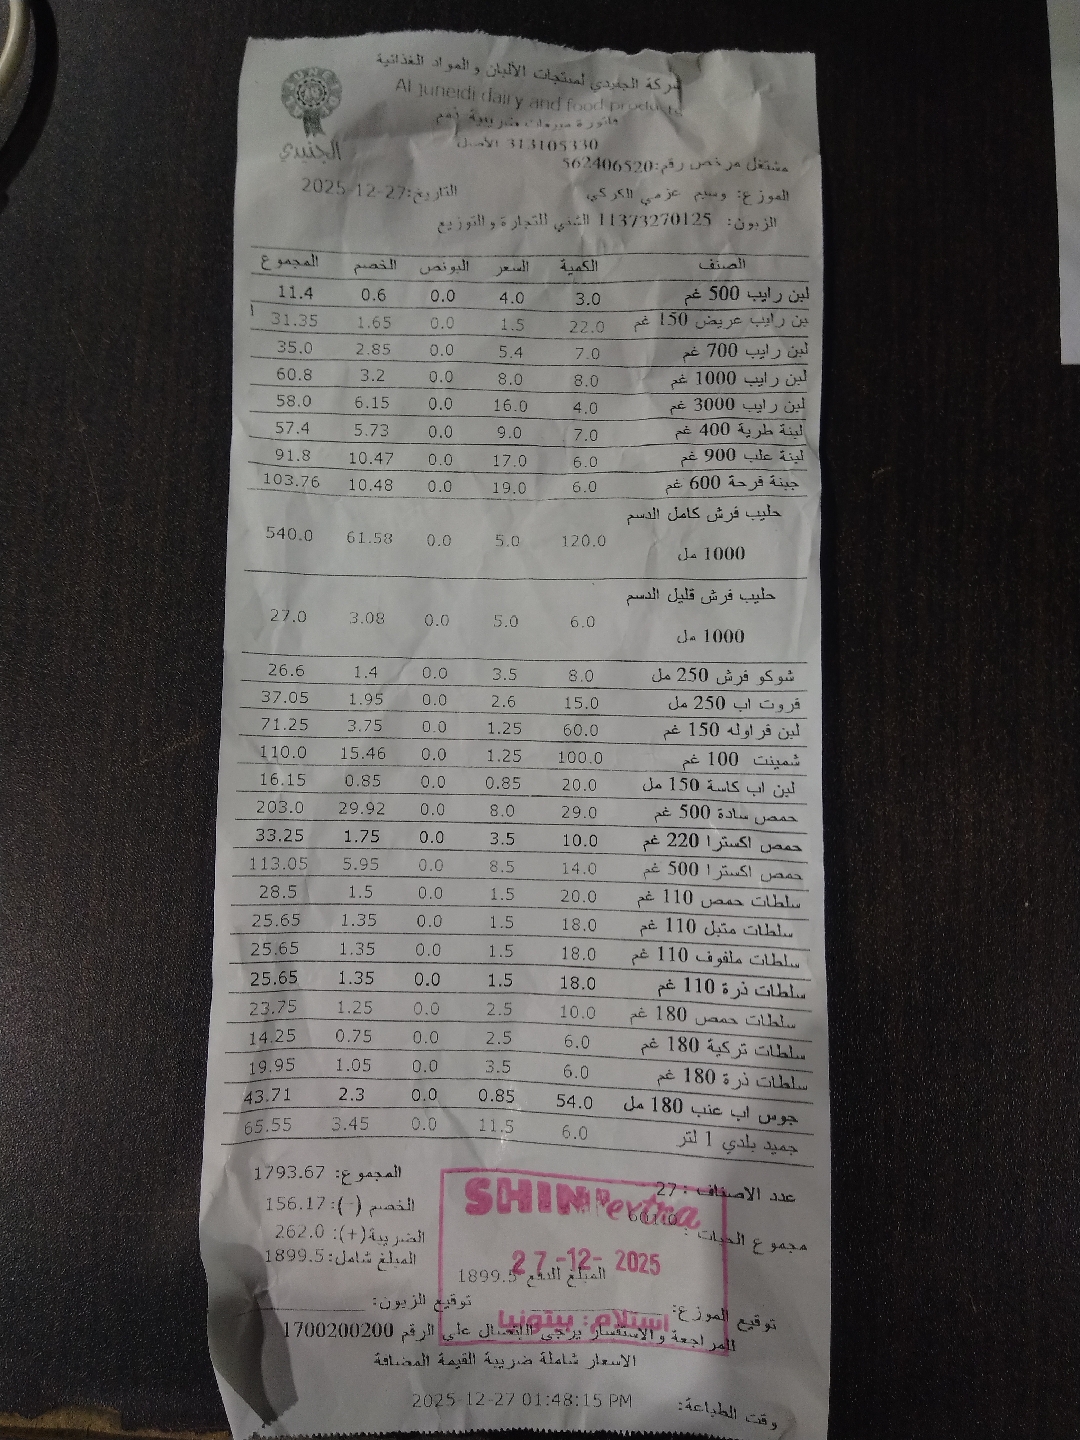 شركة الجنيدي لمنتجات الألبان والمواد الغذائية
Al juneidi dairy and food products
الجنيدي
فاتورة مبيعات ضريبية رقم
313105330 الأصل
مشتغل مرخص رقم:562406520
الموزع: وسيم عزمي الكركي التاريخ:27-12-2025
الزبون: 11373270125 الشني للتجارة والتوزيع
الصنف الكمية السعر البونص الخصم المجموع
لبن رايب 500 غم 3.0 4.0 0.0 0.6 11.4
بن رايب عريض 150 غم 22.0 1.5 0.0 1.65 31.35
لبن رايب 700 غم 7.0 5.4 0.0 2.85 35.0
لبن رايب 1000 غم 8.0 8.0 0.0 3.2 60.8
لبن رايب 3000 غم 4.0 16.0 0.0 6.15 58.0
لبنة طرية 400 غم 7.0 9.0 0.0 5.73 57.4
لبنة علب 900 غم 6.0 17.0 0.0 10.47 91.8
جبنة فرحة 600 غم 6.0 19.0 0.0 10.48 103.76
حليب فرش كامل الدسم
1000 مل 120.0 5.0 0.0 61.58 540.0
حليب فرش قليل الدسم
1000 مل 6.0 5.0 0.0 3.08 27.0
شوكو فرش 250 مل 8.0 3.5 0.0 1.4 26.6
فروت اب 250 مل 15.0 2.6 0.0 1.95 37.05
لبن فراوله 150 غم 60.0 1.25 0.0 3.75 71.25
شمينت 100 غم 100.0 1.25 0.0 15.46 110.0
لبن اب كاسة 150 مل 20.0 0.85 0.0 0.85 16.15
حمص سادة 500 غم 29.0 8.0 0.0 29.92 203.0
حمص اكسترا 220 غم 10.0 3.5 0.0 1.75 33.25
حمص اكسترا 500 غم 14.0 8.5 0.0 5.95 113.05
سلطات حمص 110 غم 20.0 1.5 0.0 1.5 28.5
سلطات متبل 110 غم 18.0 1.5 0.0 1.35 25.65
سلطات ملفوف 110 غم 18.0 1.5 0.0 1.35 25.65
سلطات ذرة 110 غم 18.0 1.5 0.0 1.35 25.65
سلطات حمص 180 غم 10.0 2.5 0.0 1.25 23.75
سلطات تركية 180 غم 6.0 2.5 0.0 0.75 14.25
سلطات ذرة 180 غم 6.0 3.5 0.0 1.05 19.95
جوس اب عنب 180 مل 54.0 0.85 0.0 2.3 43.71
جميد بلدي 1 لتر 6.0 11.5 0.0 3.45 65.55
عدد الاصناف : 27 المجموع: 1793.67
مجموع الحبات : الخصم (-): 156.17
الضريبة(+): 262.0
المبلغ شامل: 1899.5
المبلغ للدفع 1899.5
SHINI extra
27-12-2025
استلام: بيتونيا
توقيع الموزع: توقيع الزبون:
للمراجعة والاستفسار يرجى الاتصال على الرقم 1700200200
الاسعار شاملة ضريبة القيمة المضافة
وقت الطباعة: 2025-12-27 01:48:15 PM